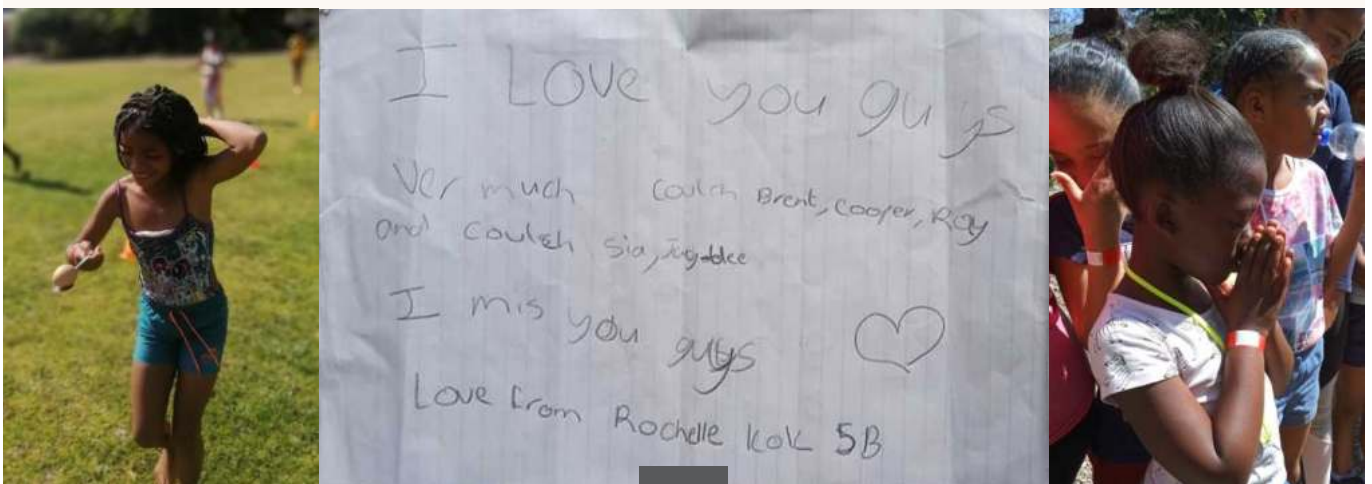 I LOVE you guys
Ver much Coutch Brent, Cooper, Roy
and Coutch Sia,
I mis you guys
Love from Rochelle Kok 5B